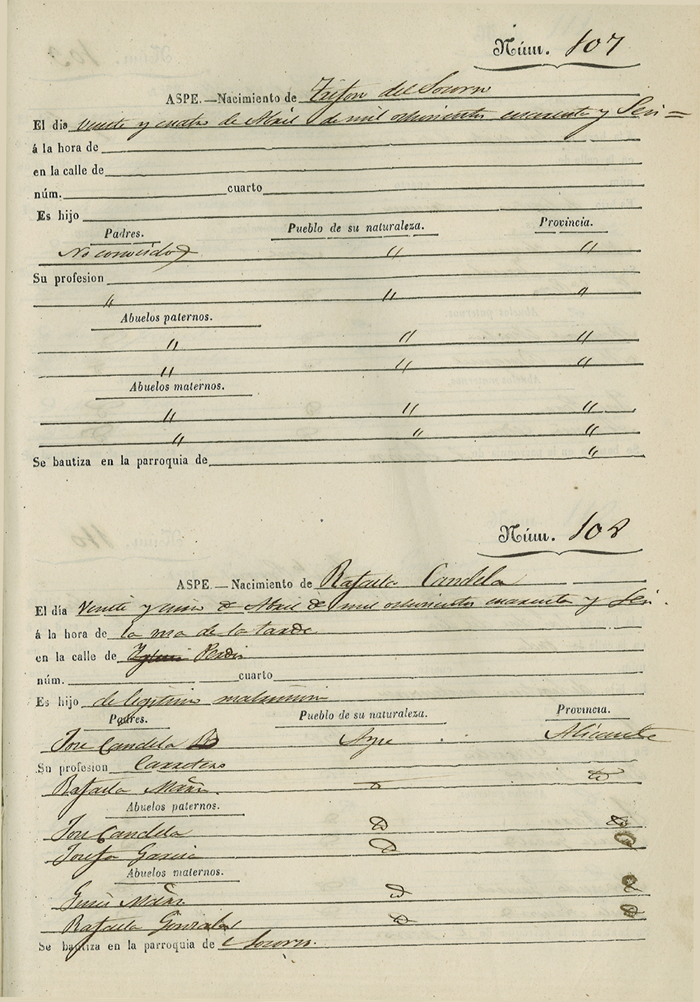 Núm. 107
ASPE.—Nacimiento de del Socorro
El dia veinte y cuatro de Abril de mil ochocientos cuarenta y Seis=
á la hora de
en la calle de
núm. cuarto
Es hijo
Padres. Pueblo de su naturaleza. Provincia.
No conocidos " "
Su profesion
" " "
Abuelos paternos.
" " "
" " "
Abuelos maternos.
" " "
" " "
Se bautiza en la parroquia de "
Núm. 108
ASPE.—Nacimiento de Rafaela Candela
El día Veinte y de Abril de mil ochocientos cuarenta y Seis.
á la hora de la una de la tarde
en la calle de
núm. cuarto
Es hijo de legitimo matrimonio
Padres. Pueblo de su naturaleza. Provincia.
Jose Candela Aspe Alicante
Su profesion Carretero
Rafaela
Abuelos paternos.
Jose Candela
Josefa Garcia
Abuelos maternos.
Gines
Rafaela Gonzalez
Se bautiza en la parroquia de Socorro.